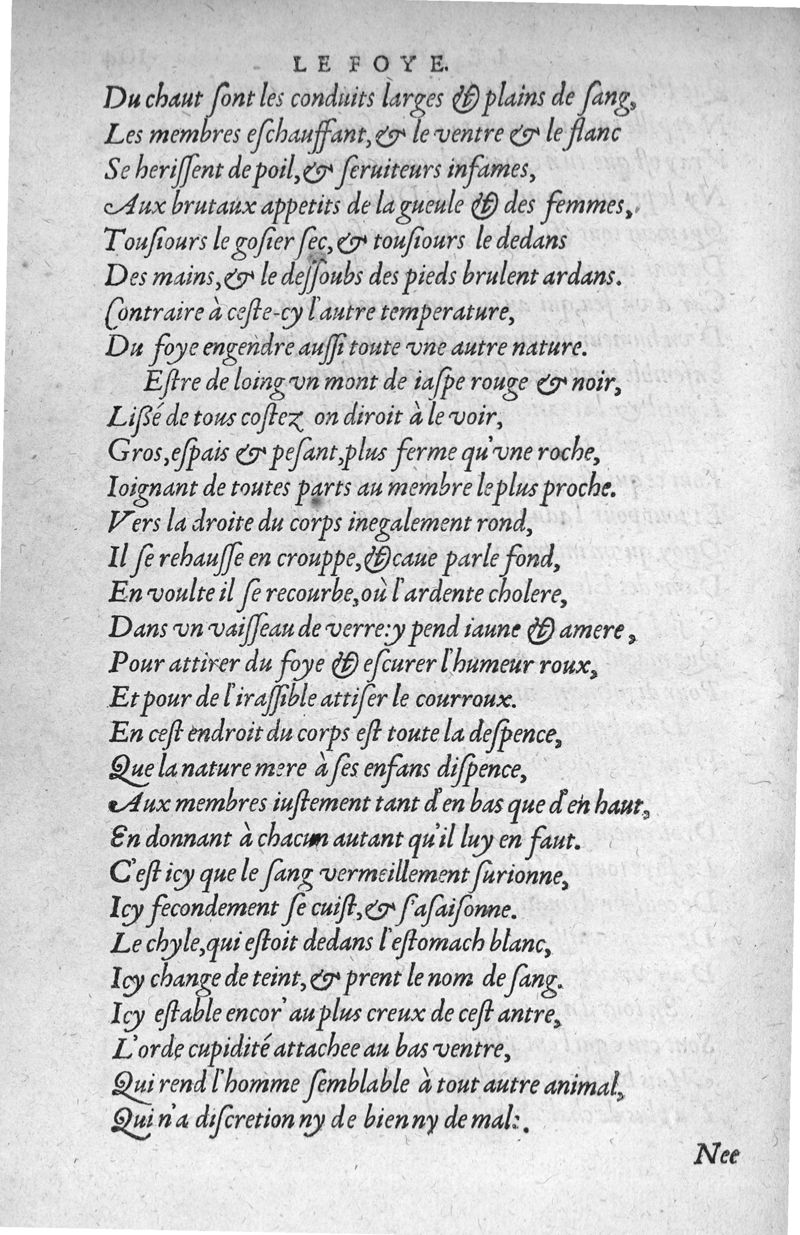 LE FOYE.
Du chaut ſont les conduits larges & plains de ſang,
Les membres eſchauffant, & le ventre & le flanc
Se heriſſent de poil, & ſeruiteurs infames,
Aux brutaux appetits de la gueule & des femmes,
Touſiours le goſier ſec, & touſiours le dedans
Des mains, & le deſſoubs des pieds brulent ardans.
Contraire à ceſte-cy l'autre temperature,
Du foye engendre auſſi toute vne autre nature.
Eſtre de loing vn mont de iaſpe rouge & noir,
Lißé de tous coſtez on diroit à le voir,
Gros, eſpais & peſant, plus ferme qu'vne roche,
Ioignant de toutes parts au membre le plus proche.
Vers la droite du corps inegalement rond,
Il ſe rehauſſe en crouppe, & caue par le fond,
En voulte il ſe recourbe, où l'ardente cholere,
Dans vn vaiſſeau de verre: y pend iaune & amere,
Pour attirer du foye & eſcurer l'humeur roux,
Et pour de l'iraſſible attiſer le courroux.
En ceſt endroit du corps eſt toute la deſpence,
Que la nature mere à ſes enfans diſpence,
Aux membres iuſtement tant d'en bas que d'en haut,
En donnant à chacun autant qu'il luy en faut.
C'eſt icy que le ſang vermeillement ſurionne,
Icy fecondement ſe cuiſt, & s'aſaiſonne.
Le chyle, qui eſtoit dedans l'eſtomach blanc,
Icy change de teint, & prent le nom de ſang.
Icy eſtable encor' au plus creux de ceſt antre,
L'orde cupidité attachee au bas ventre,
Qui rend l'homme ſemblable à tout autre animal,
Qui n'a diſcretion ny de bien ny de mal:.
Nee